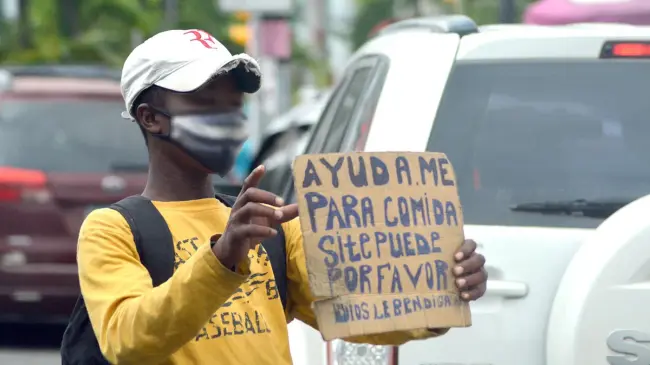 AYUDA.ME
PARA COMIDA
SITE PUEDE
POR FAVOR
DIOS LE BENDIGA
BASEBALL
S